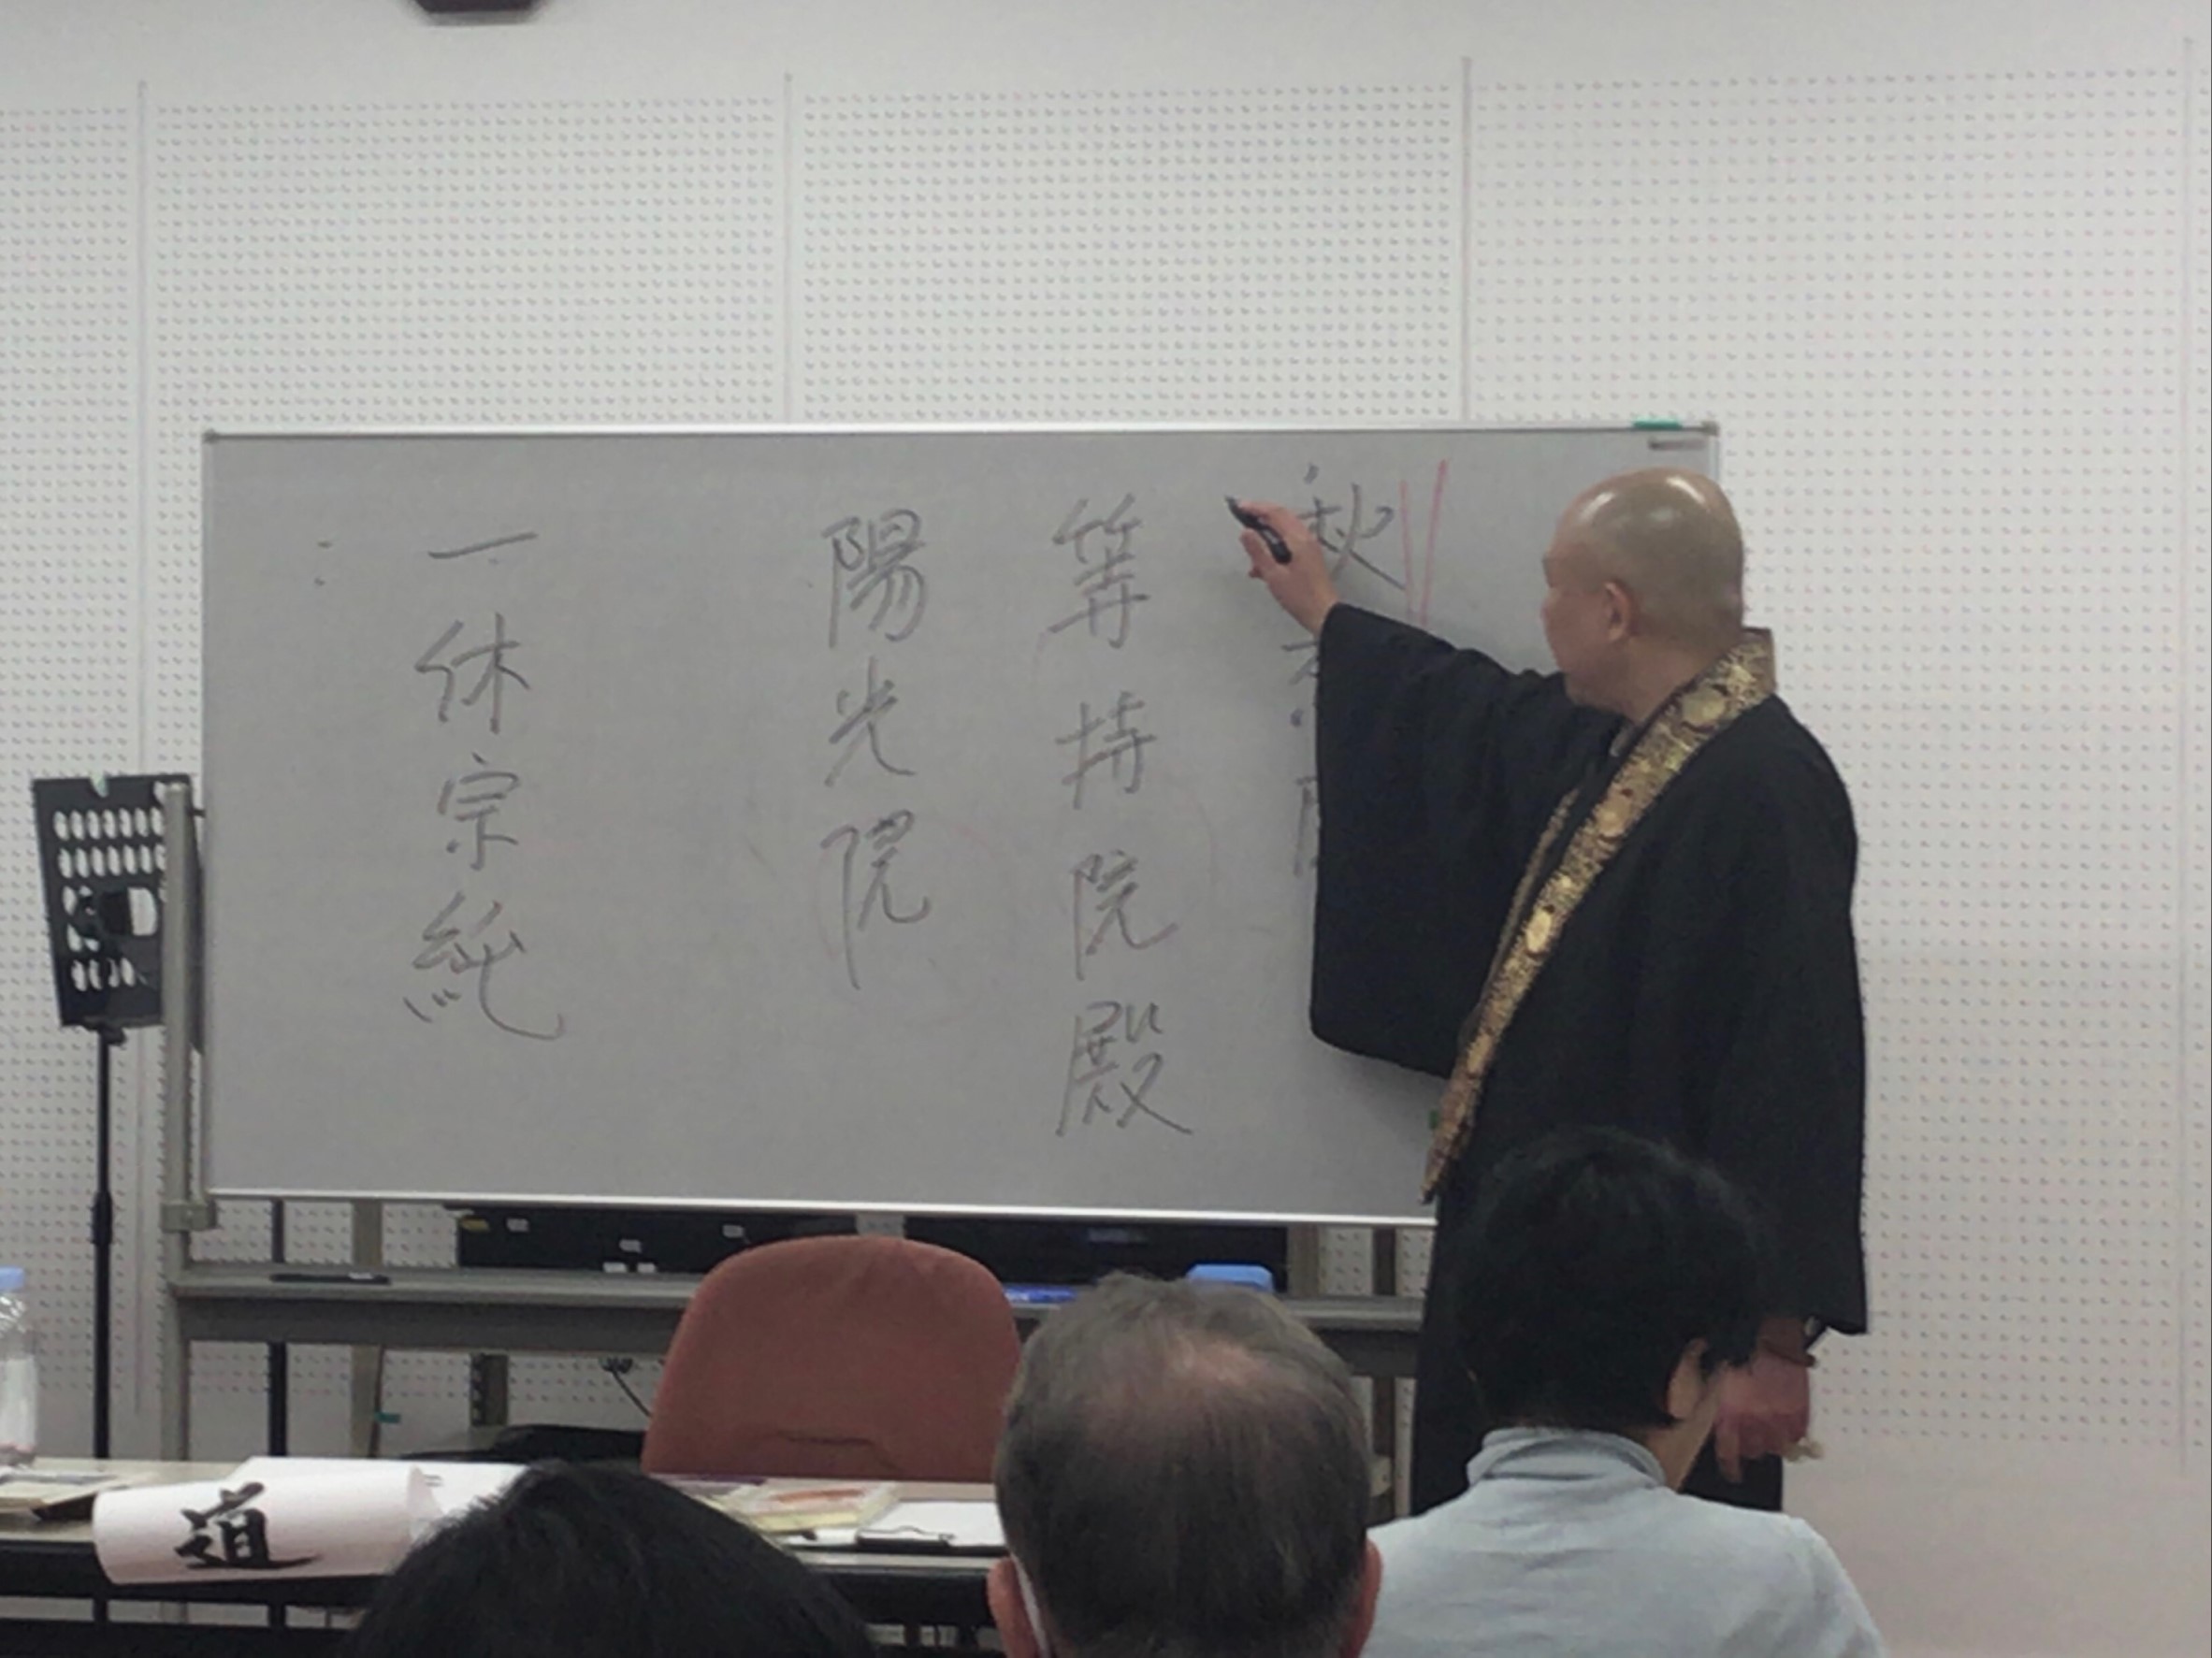 秋
等持院殿
陽光院
一休宗純
道